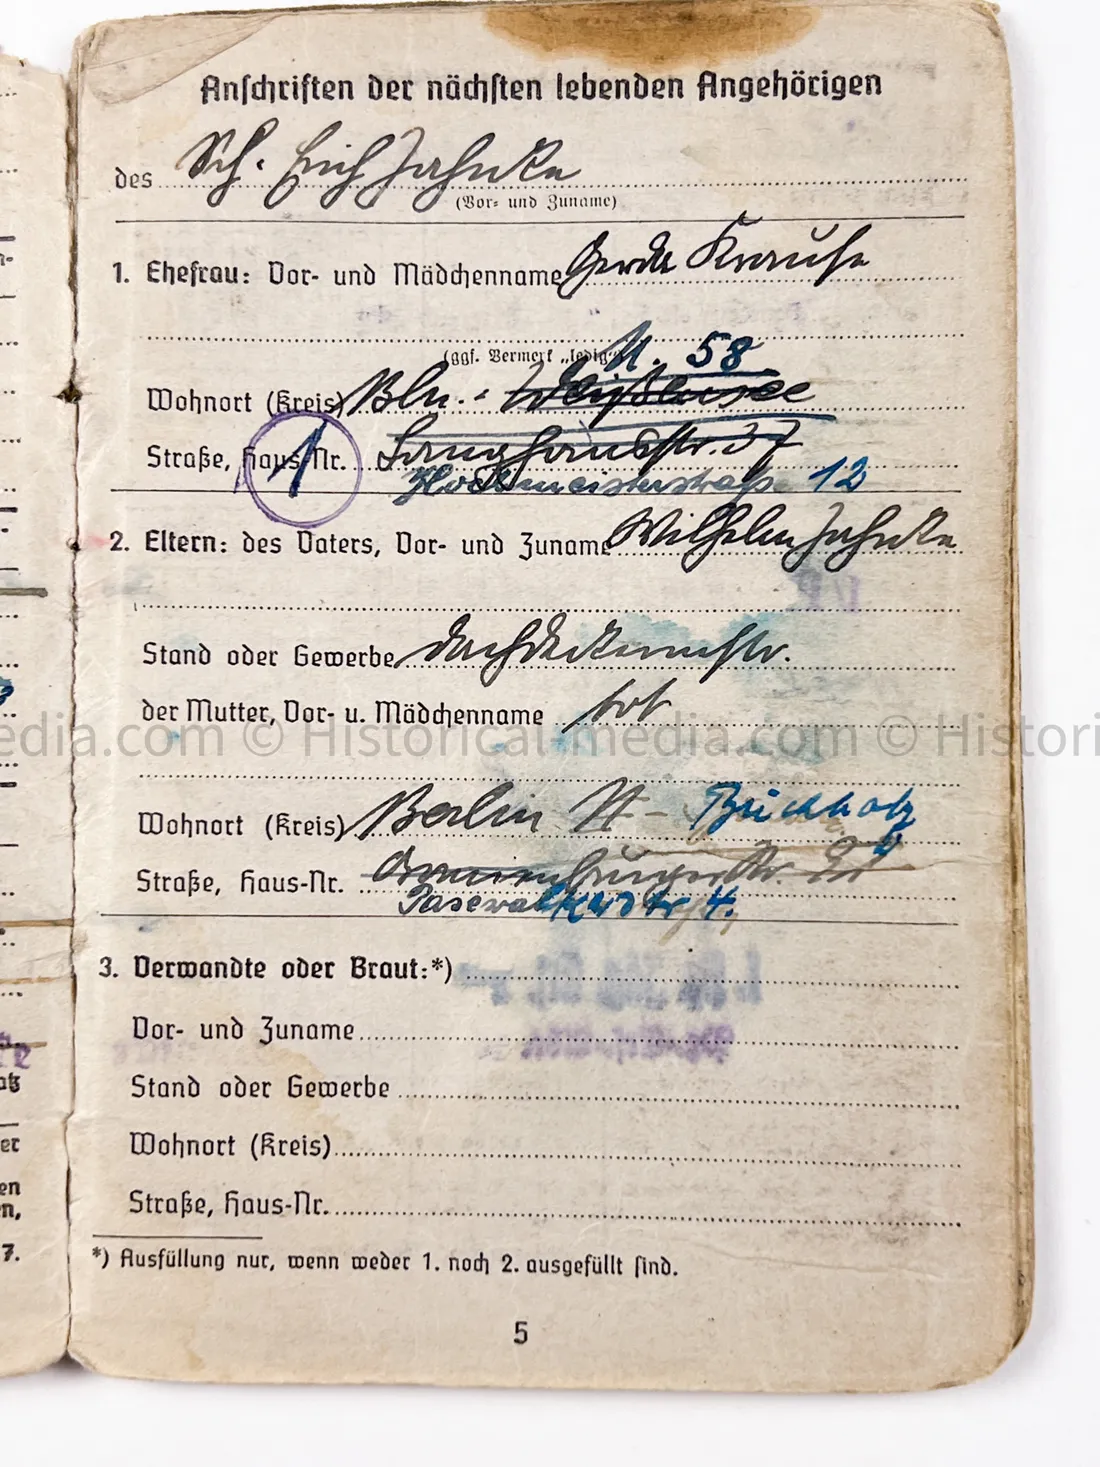 Anschriften der nächsten lebenden Angehörigen
des Sch. Erich Jahnke
(Vor- und Zuname)
1. Ehefrau: Vor- und Mädchenname Gerda Krause
(ggf. Vermerk „ledig“)
N. 58
Wohnort (Kreis) Bln.- Weißensee
Straße, Haus-Nr. Langhansstr. 37
1
Hochmeisterstraße 12
2. Eltern: des Vaters, Vor- und Zuname Wilhelm Jahnke
Stand oder Gewerbe Dachdeckermstr.
der Mutter, Vor- u. Mädchenname tot
edia.com © Historical-media.com © Histori
Wohnort (Kreis) Berlin - Buchholz
Straße, Haus-Nr. Oranienburgerstr.
Pasewalkerstr. 4.
3. Verwandte oder Braut:*)
Vor- und Zuname
Stand oder Gewerbe
Wohnort (Kreis)
Straße, Haus-Nr.
*) Ausfüllung nur, wenn weder 1. noch 2. ausgefüllt sind.
5